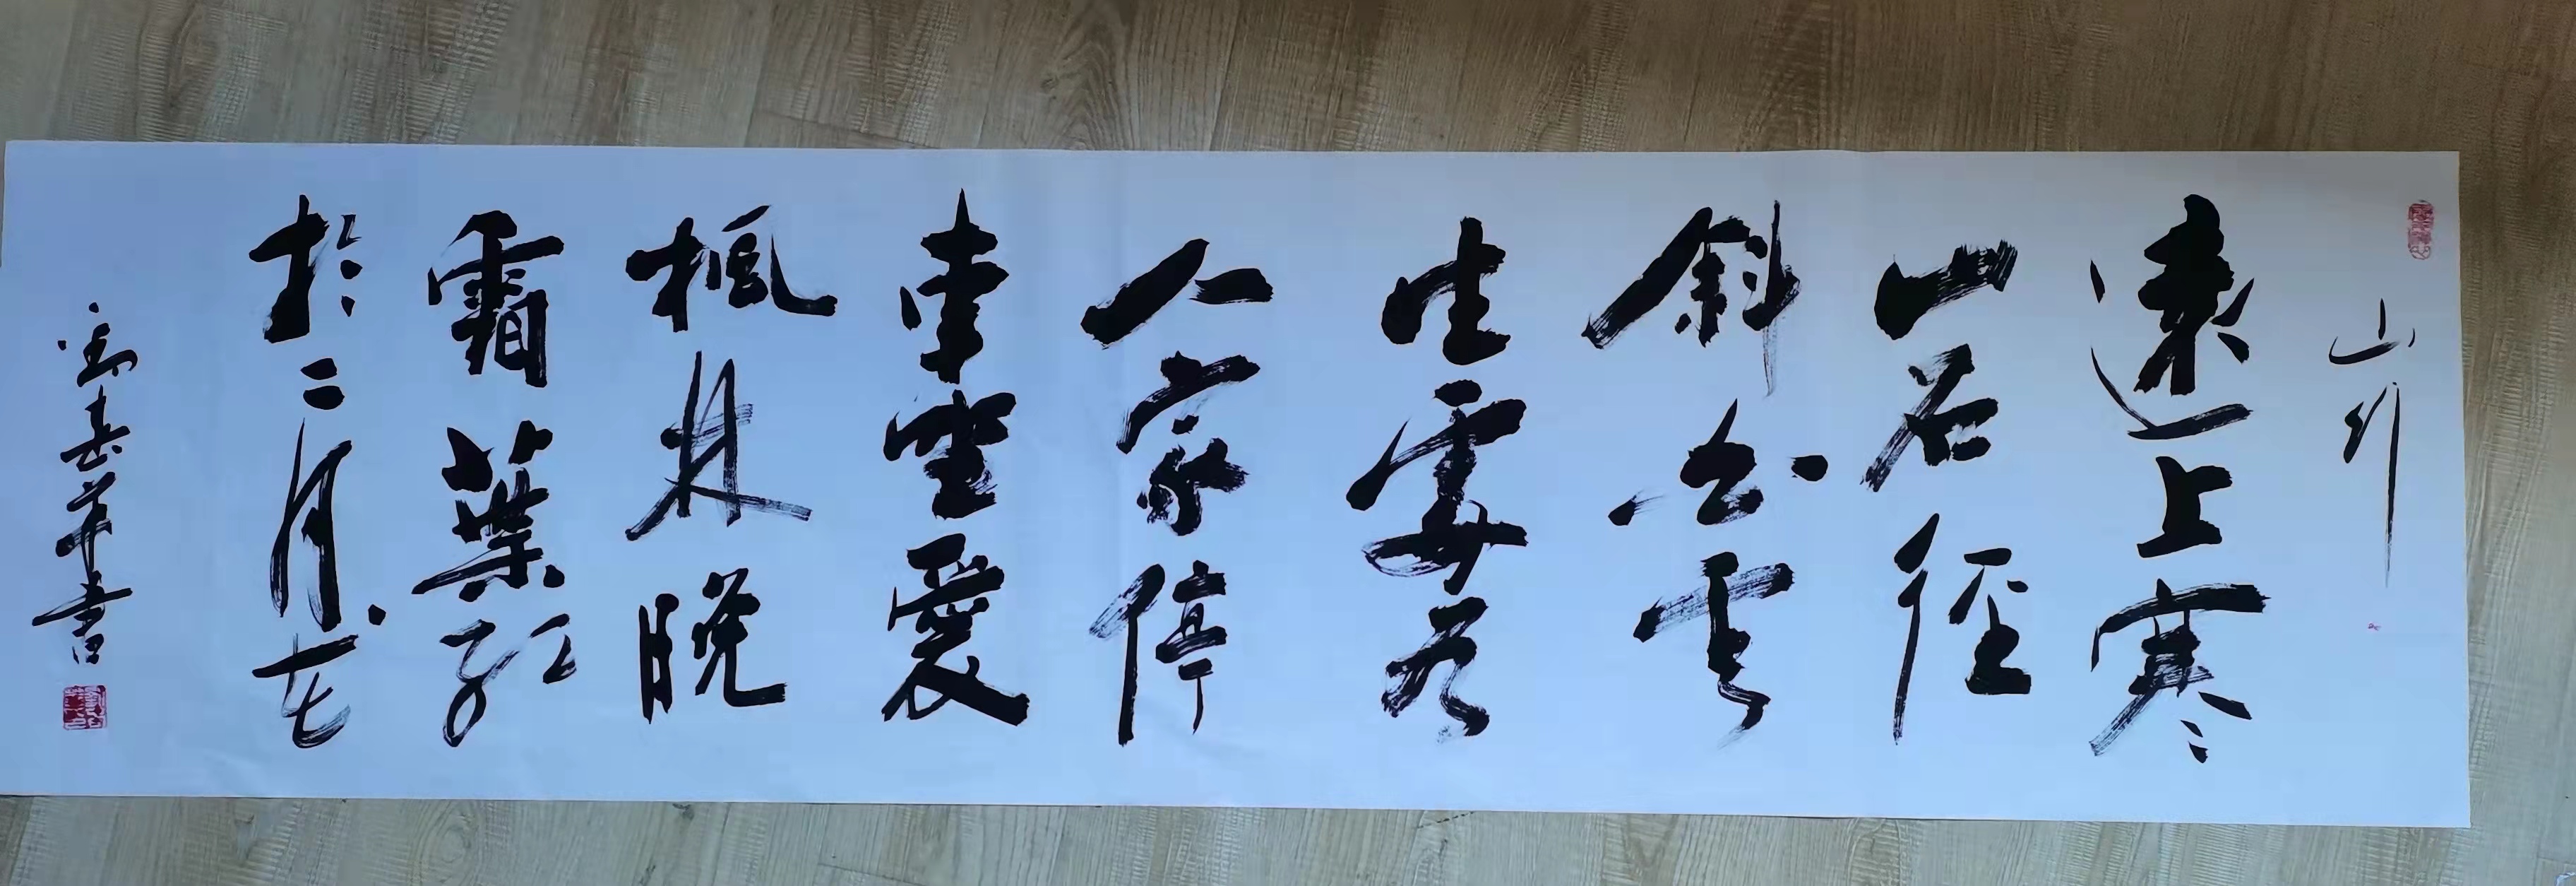 山行
遠上寒
山石徑
斜白雲
生處有
人家停
車坐愛
楓林晚
霜葉紅
於二月花
劉華書